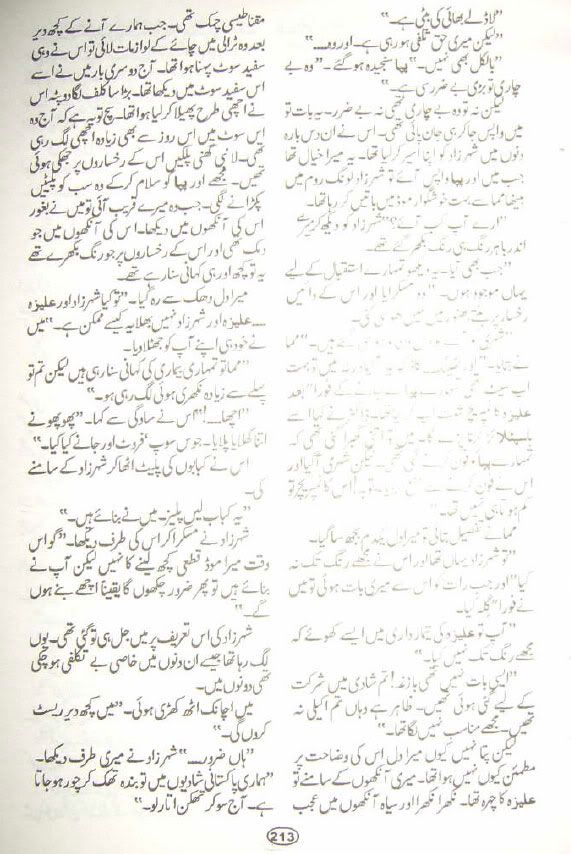 ”لاڈلے بھائی کی بیٹی ہے۔“
”لیکن میری حق تلفی ہو رہی ہے۔ اور وہ.....“
”بالکل بھی نہیں۔“ پپا سنجیدہ ہو گئے۔ ”وہ بے
چاری تو بڑی بے ضرر سی ہے۔“
لیکن نہ تو وہ بے چاری تھی نہ بے ضرر۔ یہ بات تو
میں واپس جا کر ہی جان پائی تھی۔ اس نے ان دس بارہ
دنوں میں شہرزاد کو اپنا اسیر کر لیا تھا۔ یہ میرا خیال تھا
جب میں اور پپا واپس آئے تو شہرزاد لونگ روم میں
بیٹھا مما سے بہت خوشگوار موڈ میں باتیں کر رہا تھا۔
”ارے آپ کب آئے؟“ شہرزاد کو دیکھ کر میرے
اندر باہر رنگ ہی رنگ بکھر گئے تھے۔
”جب بھی آیا۔ یہ دیکھو تمہارے استقبال کے لیے
یہاں موجود ہوں۔“ وہ مسکرایا اور اس کے دائیں
رخسار پر
مما
نے بتایا۔
علیزہ کا
مما نے تفصیل بتائی تو میرا دل یکدم بجھ سا گیا۔
”تو شہرزاد یہاں تھا اور اس نے مجھے رنگ تک نہ
کیا“ اور جب رات کو اس سے میری بات ہوئی تو میں
نے فوراً گلہ کیا۔
”آپ تو علیزہ کی تیمارداری میں ایسے کھوئے کہ
مجھے رنگ تک نہیں کیا۔“
”ایسی بات نہیں تھی بازغہ! تم شادی میں شرکت
کے لیے گئی ہوئی تھیں۔ ظاہر ہے وہاں تم اکیلی نہ
تھیں۔ مجھے مناسب نہیں لگا تھا۔“
لیکن پتا نہیں کیوں میرا دل اس کی وضاحت پر
مطمئن کیوں نہیں ہوا تھا۔ میری آنکھوں کے سامنے تو
علیزہ کا چہرہ تھا۔ نکھرا نکھرا اور سیاہ آنکھوں میں عجب
مقناطیسی چمک تھی۔ جب ہمارے آنے کے کچھ دیر
بعد وہ ٹرالی میں چائے کے لوازمات لائی تو اس نے وہی
سفید سوٹ پہنا ہوا تھا۔ آج دوسری بار میں نے اسے
اس سفید سوٹ میں دیکھا تھا۔ بڑا سا کلف لگا دوپٹہ اس
نے اچھی طرح پھیلا کر لیا ہوا تھا۔ سچ تو یہ ہے کہ آج وہ
اس سوٹ میں اس روز سے بھی زیادہ اچھی لگ رہی
تھی۔ لانبی گھنی پلکیں اس کے رخساروں پر جھکی ہوئی
تھیں۔ مجھے اور پپا کو سلام کر کے وہ سب کو پلیٹیں
پکڑانے لگی۔ جب وہ میرے قریب آئی تو میں نے بغور
اس کی آنکھوں میں دیکھا۔ اس کی آنکھوں میں جو
دمک تھی اور اس کے رخساروں پر جو رنگ بکھرے تھے
یہ تو کچھ اور ہی کہانی سنا رہے تھے۔
میرا دل دھک سے رہ گیا۔ ”تو کیا شہرزاد اور علیزہ
..... علیزہ اور شہرزاد نہیں بھلا یہ کیسے ممکن ہے۔“ میں
نے خود ہی اپنے آپ کو جھٹلا دیا۔
”مما تو تمہاری بیماری کی کہانی سنا رہی ہیں لیکن تم تو
پہلے سے زیادہ نکھری ہوئی لگ رہی ہو۔“
”اچھا.....!“ اس نے سادگی سے کہا۔ ”پھوپھو نے
اتنا کھلایا پلایا۔ جوس سوپ‘ فروٹ اور جانے کیا کیا۔“
اس نے کبابوں کی پلیٹ اٹھا کر شہرزاد کے سامنے
کی۔
”یہ کباب لیں پلیز۔ میں نے بنائے ہیں۔“
شہرزاد نے مسکرا کر اس کی طرف دیکھا۔ ”گو اس
وقت میرا موڈ قطعی کچھ لینے کا نہیں لیکن آپ نے
بنائے ہیں تو پھر ضرور چکھوں گا یقیناً اچھے بنے ہوں
گے۔“
شہرزاد کی اس تعریف پر میں جل ہی تو گئی تھی۔ یوں
لگ رہا تھا جیسے ان دنوں میں خاصی بے تکلفی ہو چکی
تھی دونوں میں۔
میں اچانک اٹھ کھڑی ہوئی۔ ”میں کچھ دیر ریسٹ
کروں گی۔“
”ہاں ضرور.....“ شہرزاد نے میری طرف دیکھا۔
”ہماری پاکستانی شادیوں میں تو بندہ تھک کر چور ہو جاتا
ہے۔ آج سو کر تھکن اتار لو۔“
213